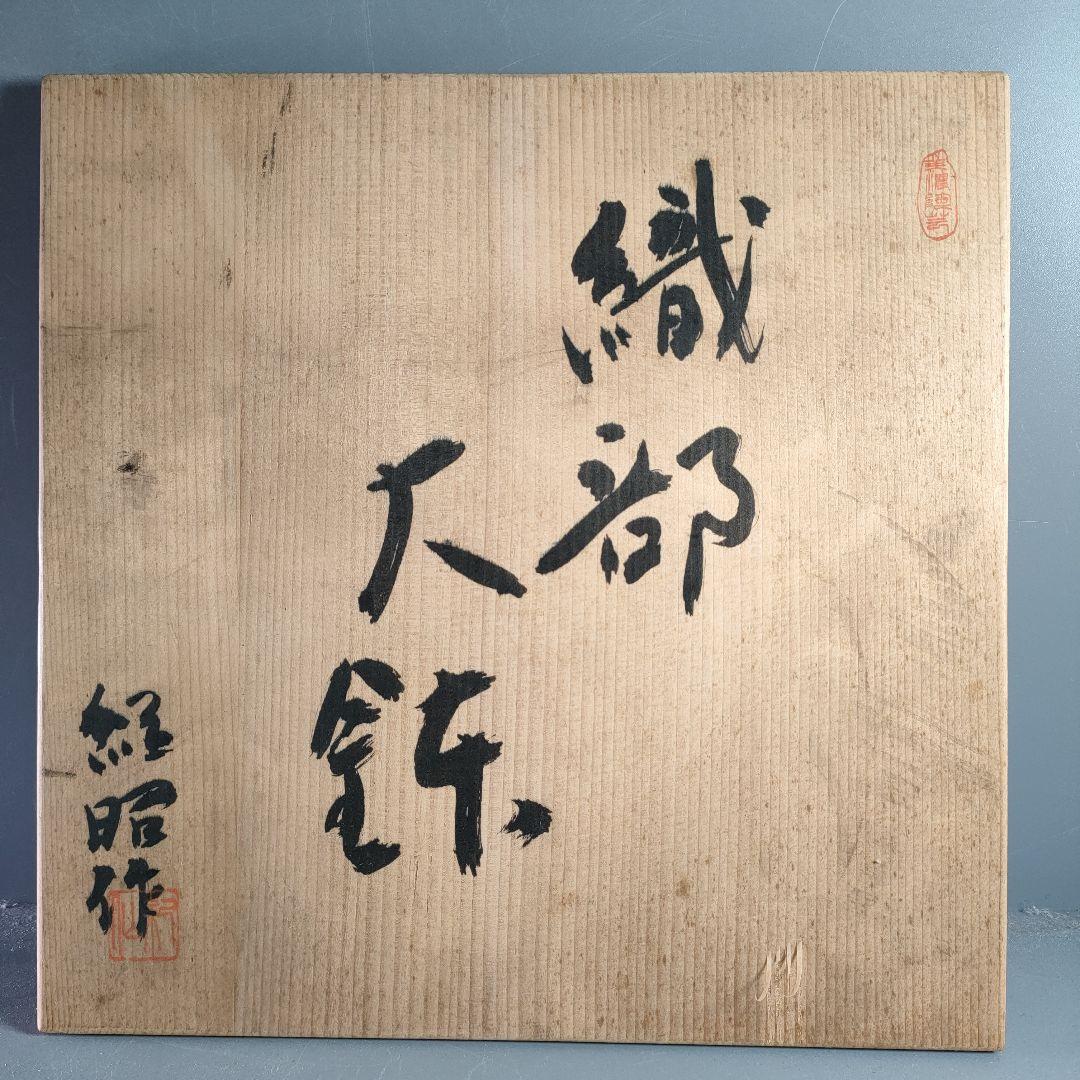 織部
大鉢
経昭作